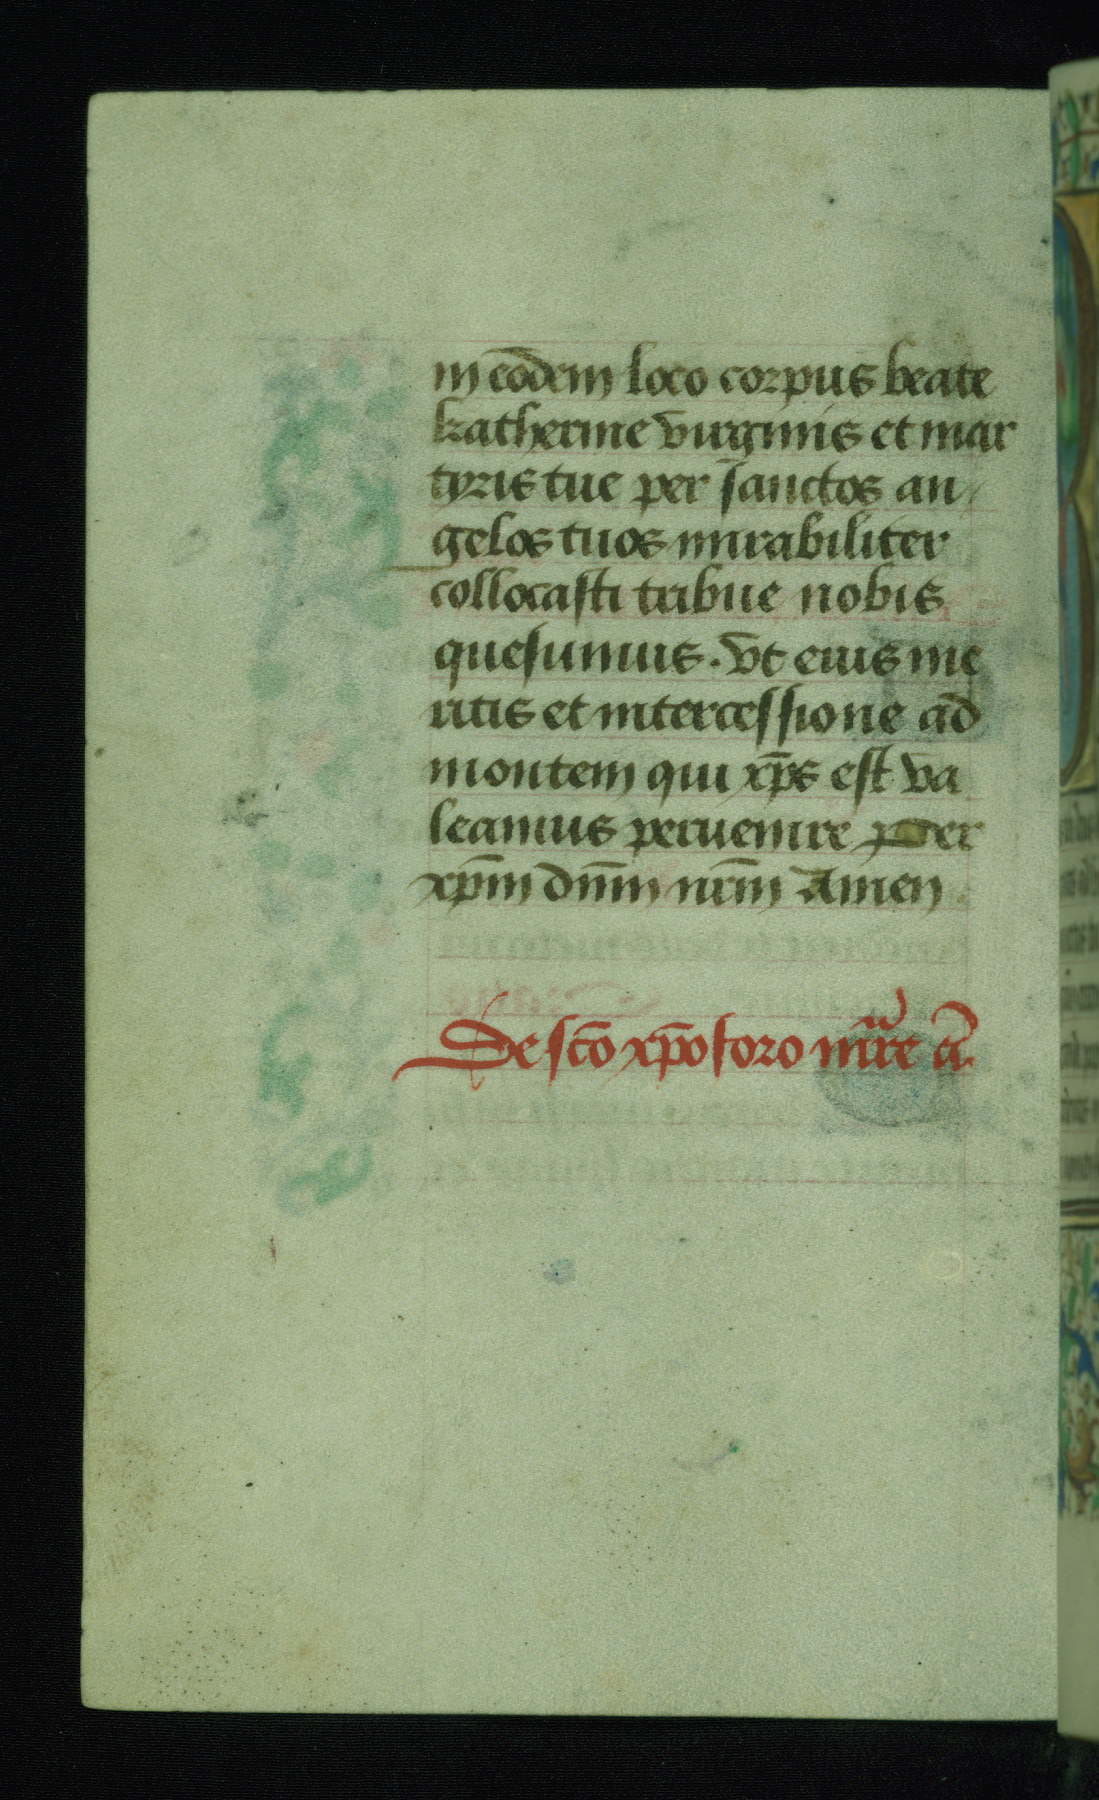 in eodem loco corpus beate
katherine virginis et mar
tyris tue per sanctos an
gelos tuos mirabiliter
collocasti tribue nobis
quesumus. vt eius me
ritis et intercessione ad
montem qui xp̄s est va
leamus peruenire Per
xp̄m dn̄m nr̄m Amen
De sc̄o xp̄oforo mr̄e a͞.